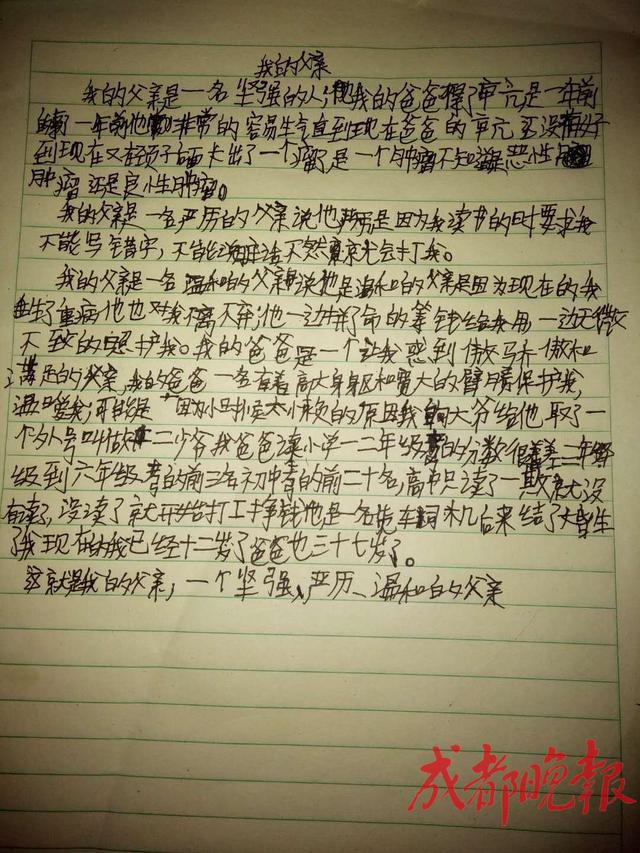 我的父亲
我的父亲是一名坚强的人,我的爸爸得了甲亢是一年前
一年前他非常的容易生气直到现在爸爸的甲亢还没有好
到现在又轻颈子后面卡出了一个瘤了是一个肿瘤不知道是恶性
肿瘤还是良性肿瘤。
我的父亲是一名严历的父亲说他严历是因为我读书的时要求我
不能写错字,不能不然就会打我。
我的父亲是一名温和的父亲说他是温和的父亲是因为现在的我
生了重病他也对我不离不弃他一边拼了命的筹钱给我用一边无微
不致的照护我。我的爸爸是一个让我感到骄傲和
满足的父亲,我的爸爸一名有着高大身躯和宽大的臂膀保护我,
温暖我,可能是因为小时候太小的原因我大爷给他取了一
个外号叫做二少爷我爸爸读小学一二年级考的分数很差三年
级到六年级考的前三名初中考的前二十名,高中只读了一就没
有读了,没读了就开始打工挣钱他是一名货车司机后来结了婚生
了我现在我已经十二岁了爸爸也三十七岁了。
这就是我的父亲,一个坚强、严历、温和的父亲
成都晚报